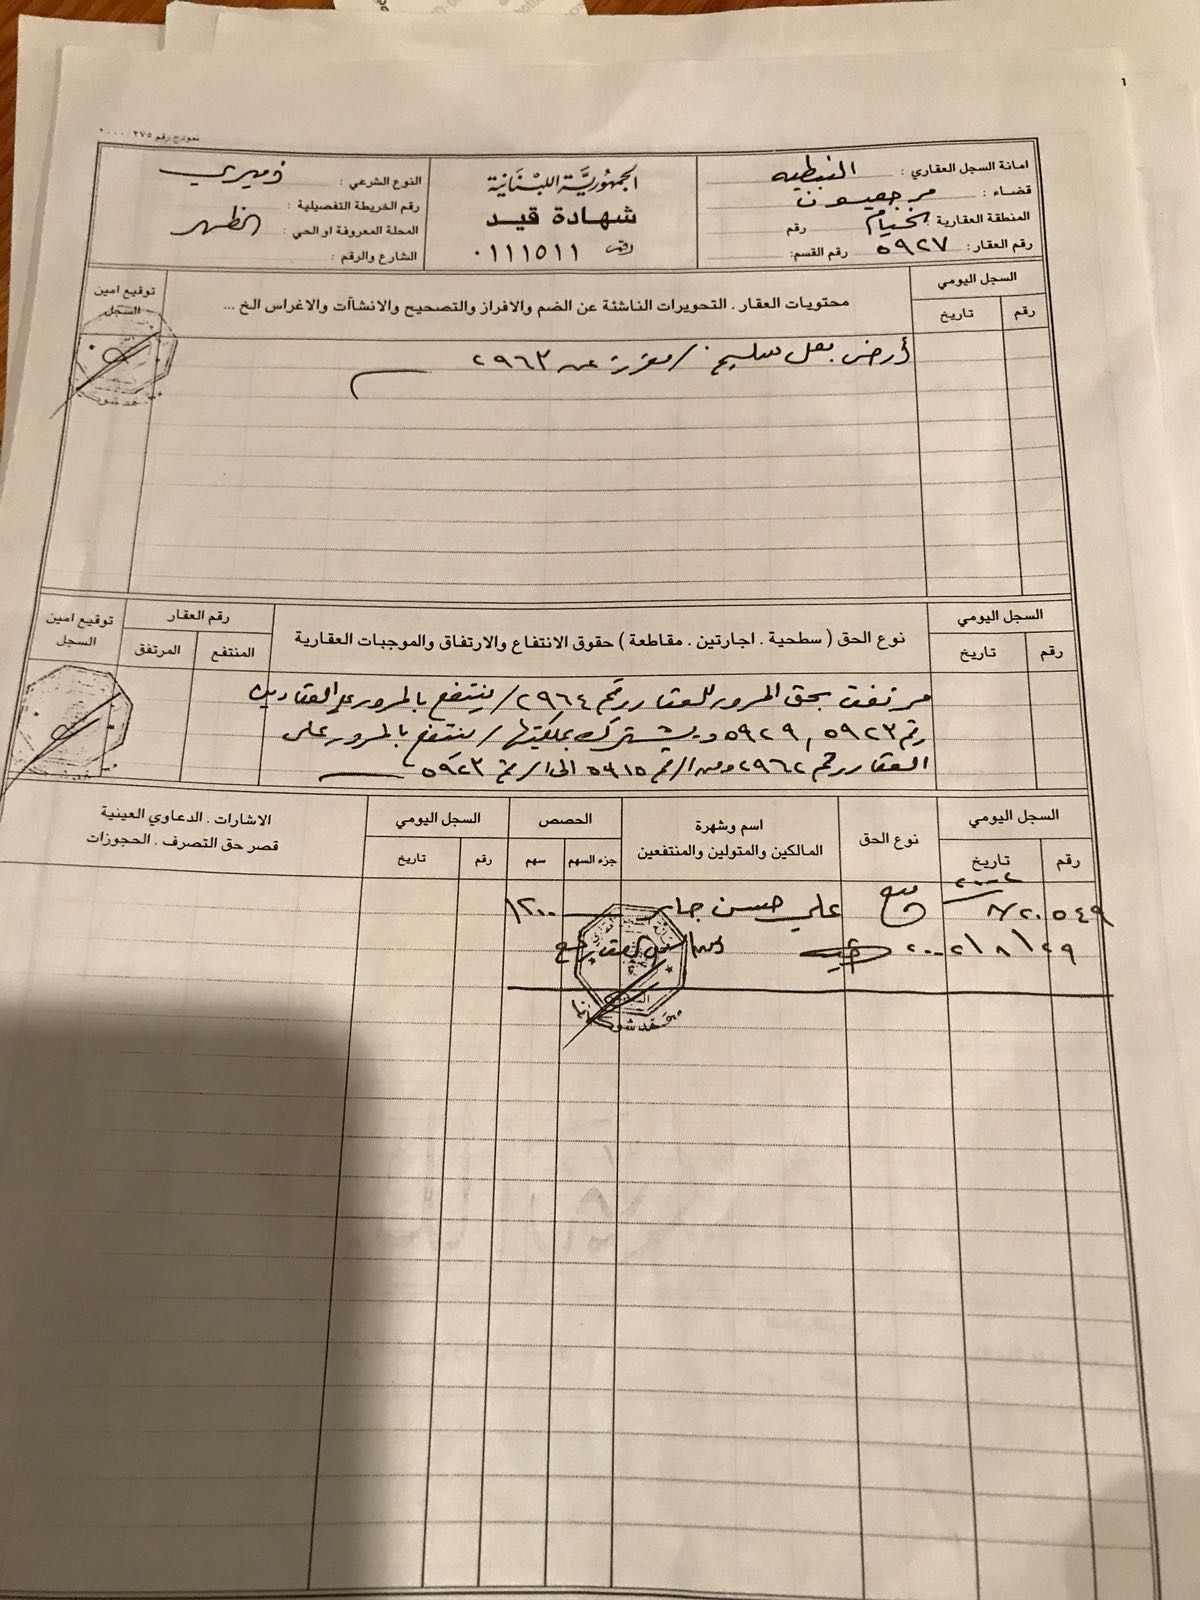 نموذج رقم ٢٧٥ ٢٠٠٠٠
امانة السجل العقاري : النبطيه
قضاء : مرجعيون
المنطقة العقارية الخيام رقم
رقم العقار: ٥٩٢٧ رقم القسم:
الجمهوريّة اللبنانية
شهادة قيد
رقم ٠١١١٥١١
النوع الشرعي :
رقم الخريطة التفصيلية :
المحلة المعروفة او الحي : الظهر
الشارع والرقم :
السجل اليومي
رقم
تاريخ
محتويات العقار . التحويرات الناشئة عن الضم والافراز والتصحيح والانشاآت والاغراس الخ ...
توقيع امين
السجل
أرض بعل سليخ / مفرزة عن ٢٩٦٣
السجل اليومي
رقم
تاريخ
نوع الحق ( سطحية . اجارتين . مقاطعة ) حقوق الانتفاع والارتفاق والموجبات العقارية
رقم العقار
المنتفع
المرتفق
توقيع امين
السجل
مرتفق بحق المرور للعقار رقم ٢٩٦٤ / ينتفع بالمرور على العقارين
رقم ٥٩٢٣ و ٥٩٢٩ ويشترك بملكيتها / ينتفع بالمرور على
العقار رقم ٢٩٦٢ ومن الرقم ٥٩١٥ الى الرقم ٥٩٢٣
السجل اليومي
رقم
تاريخ
نوع الحق
اسم وشهرة
المالكين والمتولين والمنتفعين
الحصص
جزء السهم
سهم
السجل اليومي
رقم
تاريخ
الاشارات . الدعاوي العينية
قصر حق التصرف . الحجوزات
٥٤٩ بيع علي حسن ١٢٠٠
٢٠٠٢/٨/٢٩